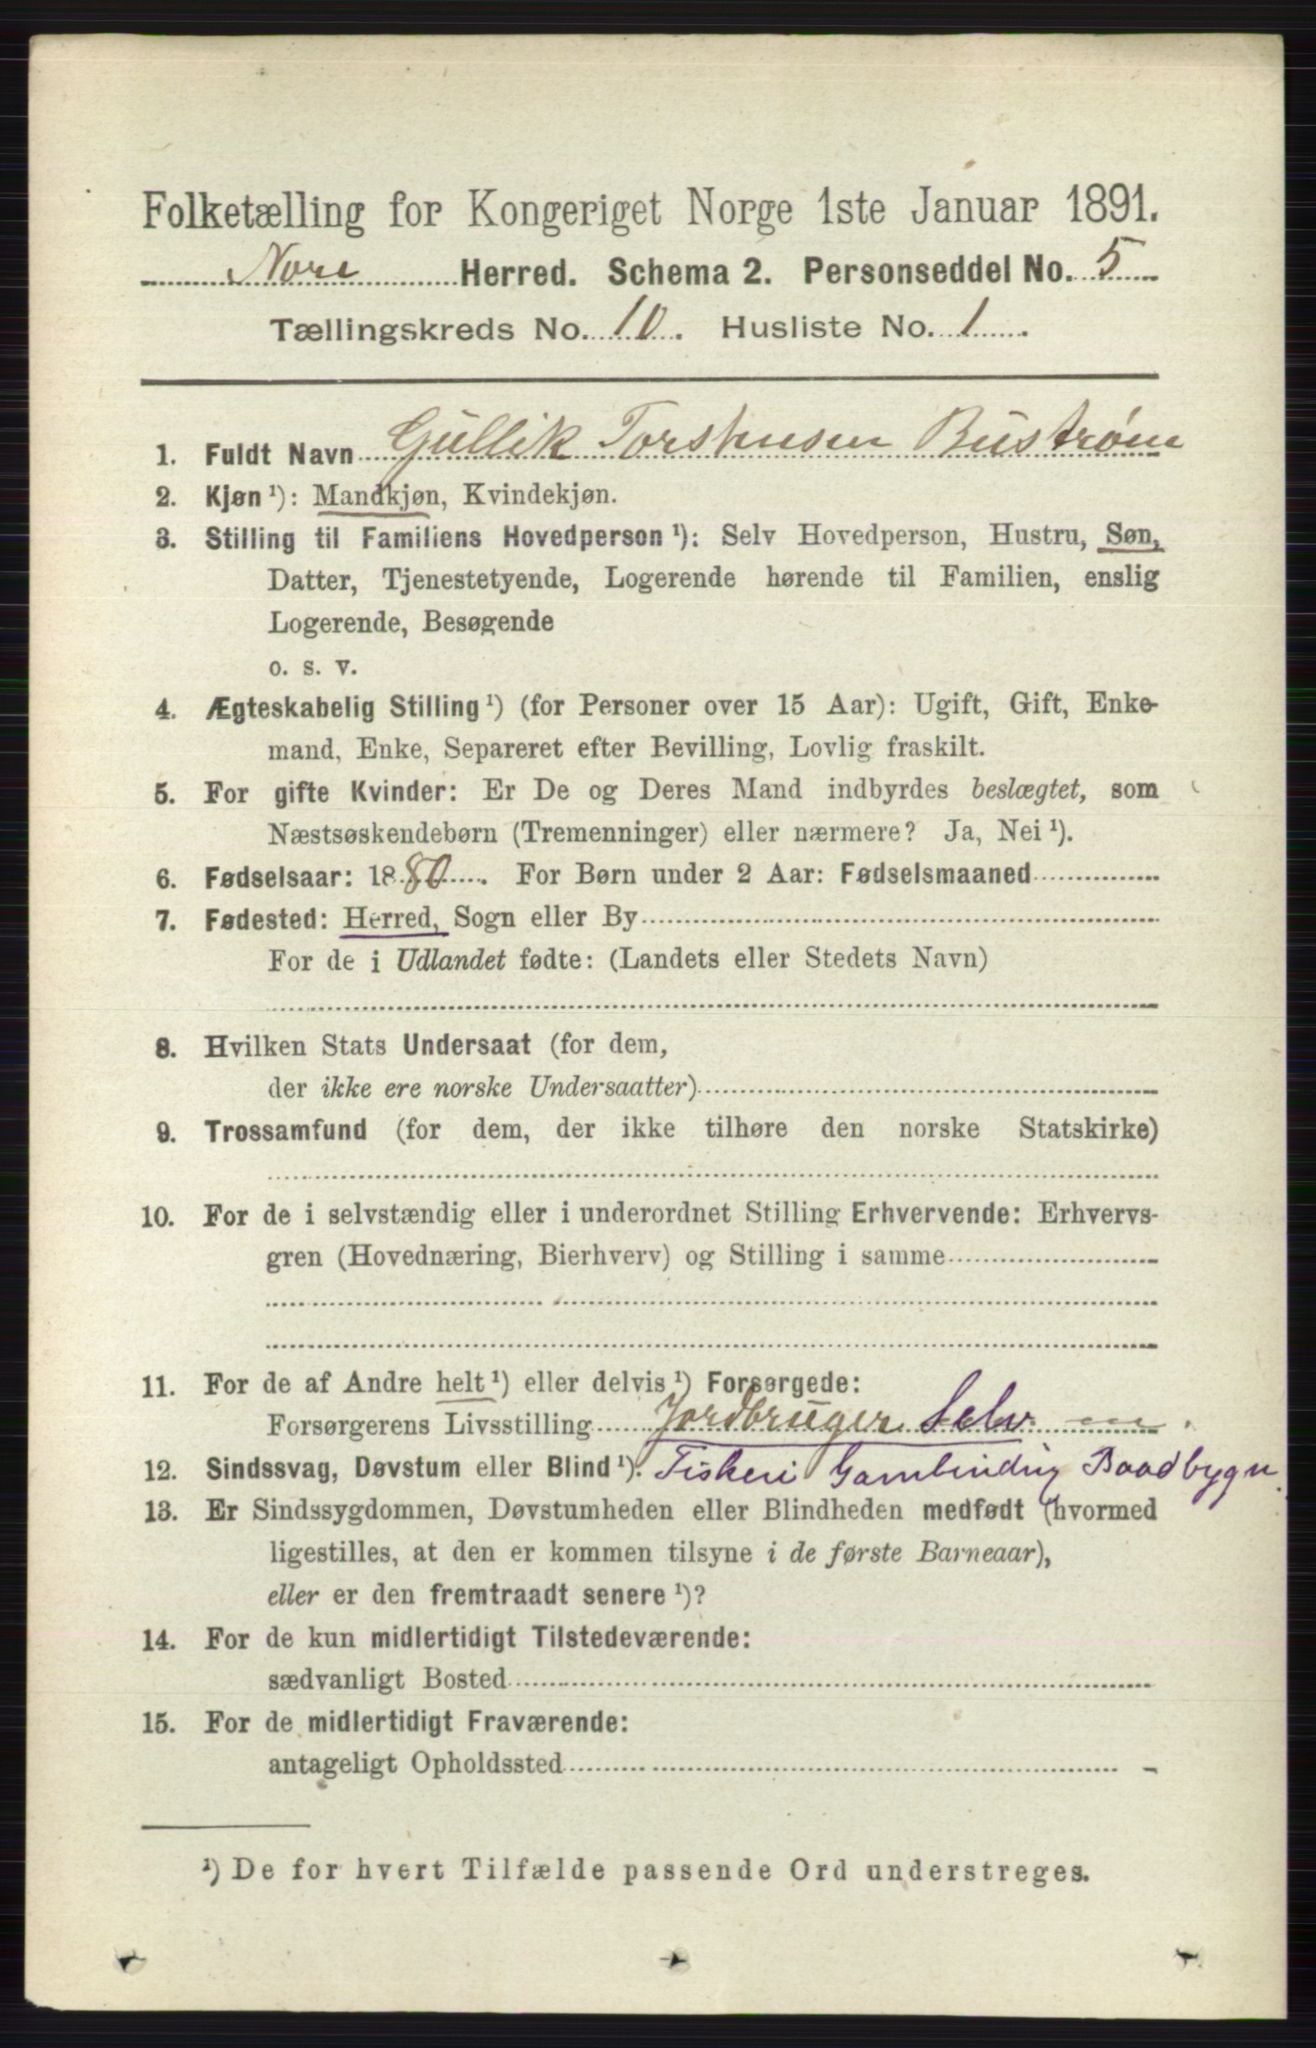 Folketælling for Kongeriget Norge 1ste Januar 1891.
Nore Herred. Schema 2. Personseddel No. 5
Tællingskreds No. 10. Husliste No. 1.
1. Fuldt Navn Gullik Torstensen Bustrøm
2. Kjøn ¹): Mandkjøn, Kvindekjøn.
3. Stilling til Familiens Hovedperson ¹): Selv Hovedperson, Hustru, Søn,
Datter, Tjenestetyende, Logerende hørende til Familien, enslig
Logerende, Besøgende
o. s. v.
4. Ægteskabelig Stilling ¹) (for Personer over 15 Aar): Ugift, Gift, Enke-
mand, Enke, Separeret efter Bevilling, Lovlig fraskilt.
5. For gifte Kvinder: Er De og Deres Mand indbyrdes beslægtet, som
Næstsøskendebørn (Tremenninger) eller nærmere? Ja, Nei ¹).
6. Fødselsaar: 1880. For Børn under 2 Aar: Fødselsmaaned
7. Fødested: Herred, Sogn eller By
For de i Udlandet fødte: (Landets eller Stedets Navn)
8. Hvilken Stats Undersaat (for dem,
der ikke ere norske Undersaatter)
9. Trossamfund (for dem, der ikke tilhøre den norske Statskirke)
10. For de i selvstændig eller i underordnet Stilling Erhvervende: Erhvervs-
gren (Hovednæring, Bierhverv) og Stilling i samme
11. For de af Andre helt ¹) eller delvis ¹) Forsørgede:
Forsørgerens Livsstilling Jordbruger Selv
12. Sindssvag, Døvstum eller Blind ¹). Fiskeri Garnbinding Baadbygn.
13. Er Sindssygdommen, Døvstumheden eller Blindheden medfødt (hvormed
ligestilles, at den er kommen tilsyne i de første Barneaar),
eller er den fremtraadt senere ¹)?
14. For de kun midlertidigt Tilstedeværende:
sædvanligt Bosted
15. For de midlertidigt Fraværende:
antageligt Opholdssted
¹) De for hvert Tilfælde passende Ord understreges.